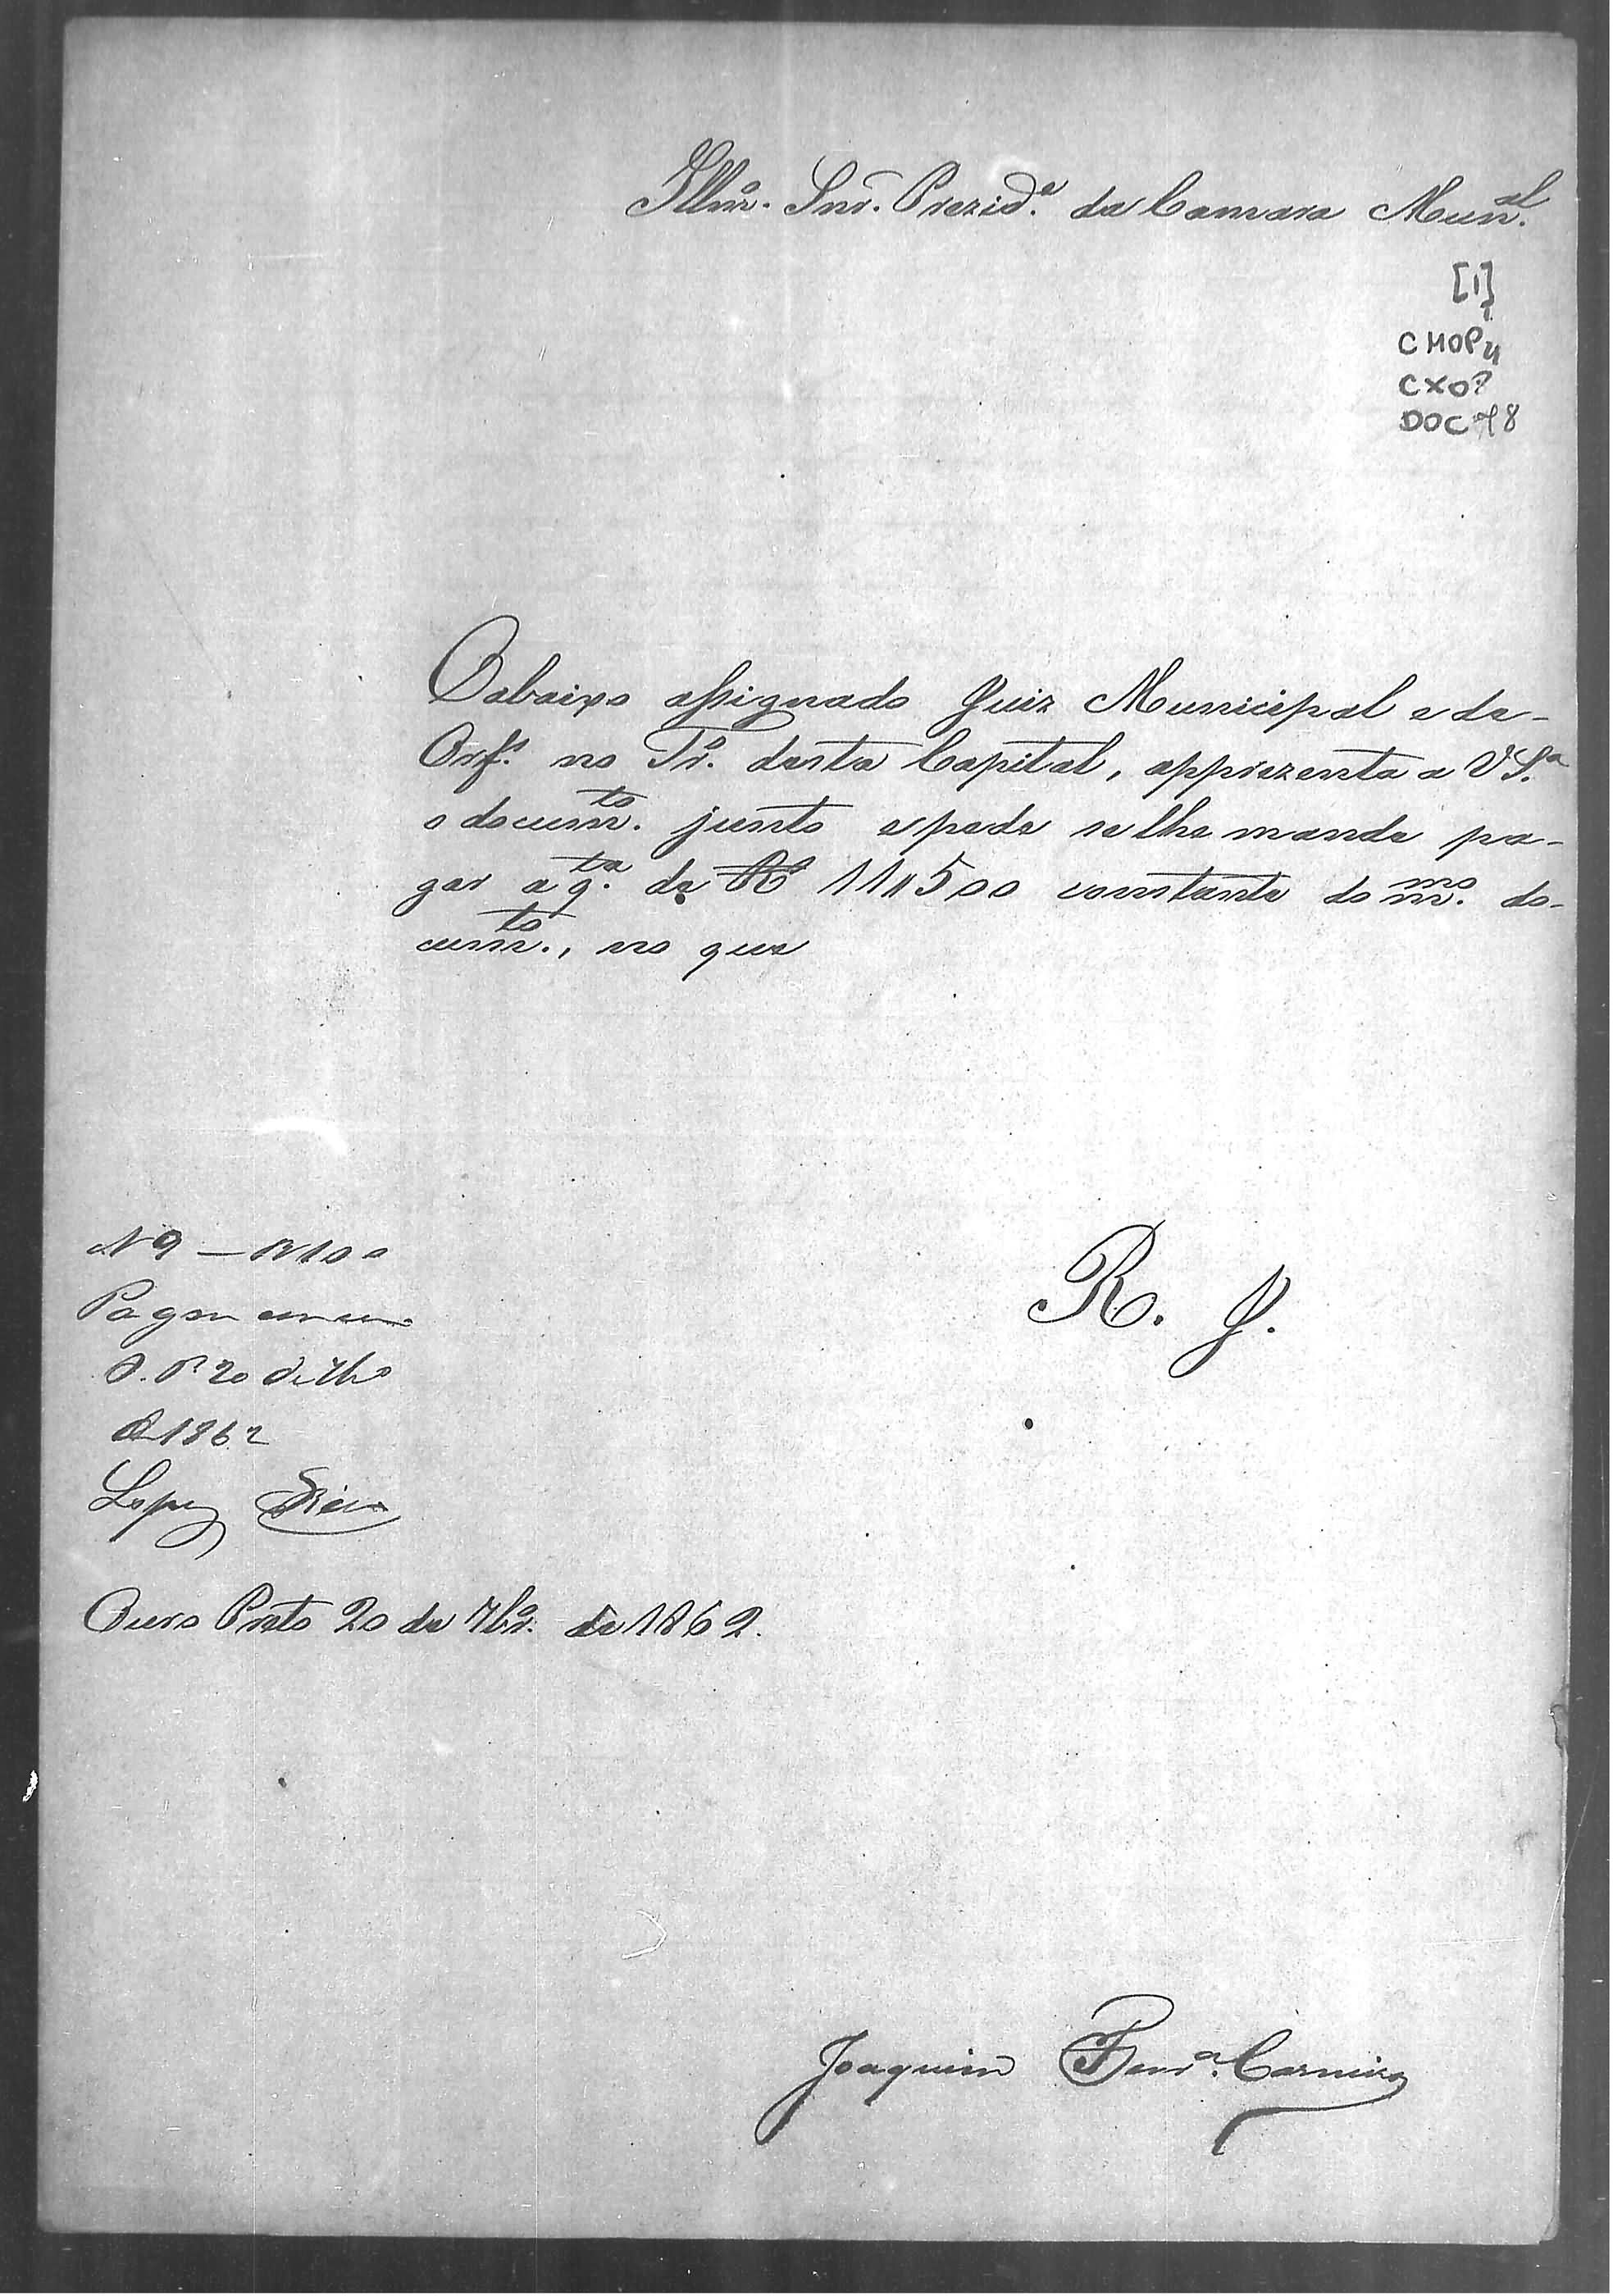 Illmº. Snr. Prezidᵉ. da Camara Munᵃˡ.
[1]
CMOP
CX07
DOC 78
O abaixo assignado Juiz Municipal e de
Orfˢ. no Trº. desta Capital, apprezenta a V Sª.
o documᵗᵒ. junto e pede se lhe mande pa-
gar a qᵗᵃ. de Rˢ 11"500 constante do mᵐᵒ. do-
cumᵗᵒ., no que
R. J.
Nº 9
O. P. 20 de 7bʳᵒ
de 1862
Lopes
Ouro Preto 20 de 7brº. de 1862.
Joaquim Ferrª. Carneiro